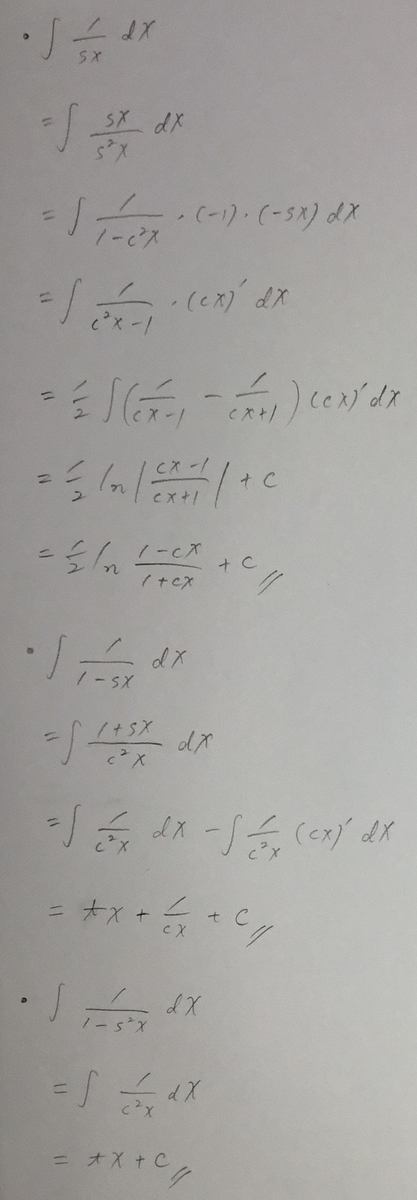 • ∫ 1/sx dx
= ∫ sx/s²x dx
= ∫ 1/(1-c²x) · (-1) · (-sx) dx
= ∫ 1/(c²x-1) · (cx)′ dx
= 1/2 ∫ (1/(cx-1) - 1/(cx+1)) (cx)′ dx
= 1/2 ln |(cx-1)/(cx+1)| + c
= 1/2 ln (1-cx)/(1+cx) + c //
• ∫ 1/(1-sx) dx
= ∫ (1+sx)/c²x dx
= ∫ 1/c²x dx - ∫ 1/c²x (cx)′ dx
= tx + 1/cx + c //
• ∫ 1/(1-s²x) dx
= ∫ 1/c²x dx
= tx + c //